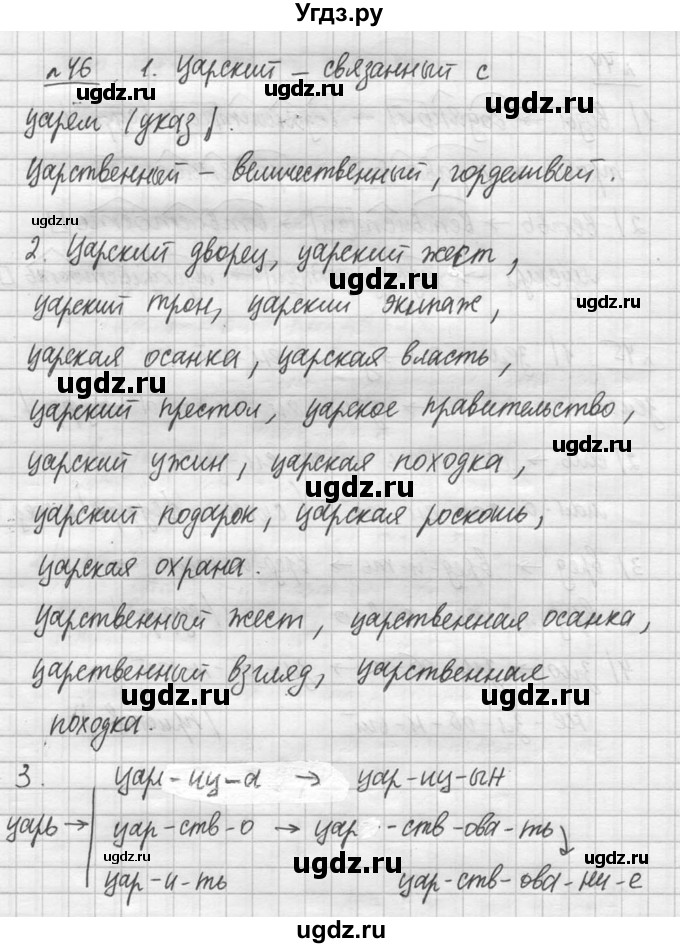 Угдз.ру
№46 1. Царский – связанный с
царём (указ).
Царственный – величественный, горделивый.
2. Царский дворец, царский жест,
царский трон, царский экипаж,
царская осанка, царская власть,
царский престол, царское правительство,
царский ужин, царская походка,
царский подарок, царская роскошь,
царская охрана.
Царственный жест, царственная осанка,
царственный взгляд, царственная
походка.
3. цар-иц-а → цар-иц-ын
царь → цар-ств-о → цар-ств-ова-ть
цар-и-ть цар-ств-ова-ни-е
ugdz.ru
ugdz.ru
ugdz.ru
ugdz.ru
ugdz.ru
ugdz.ru
ugdz.ru
ugdz.ru
ugdz.ru
ugdz.ru
ugdz.ru
ugdz.ru
ugdz.ru
ugdz.ru